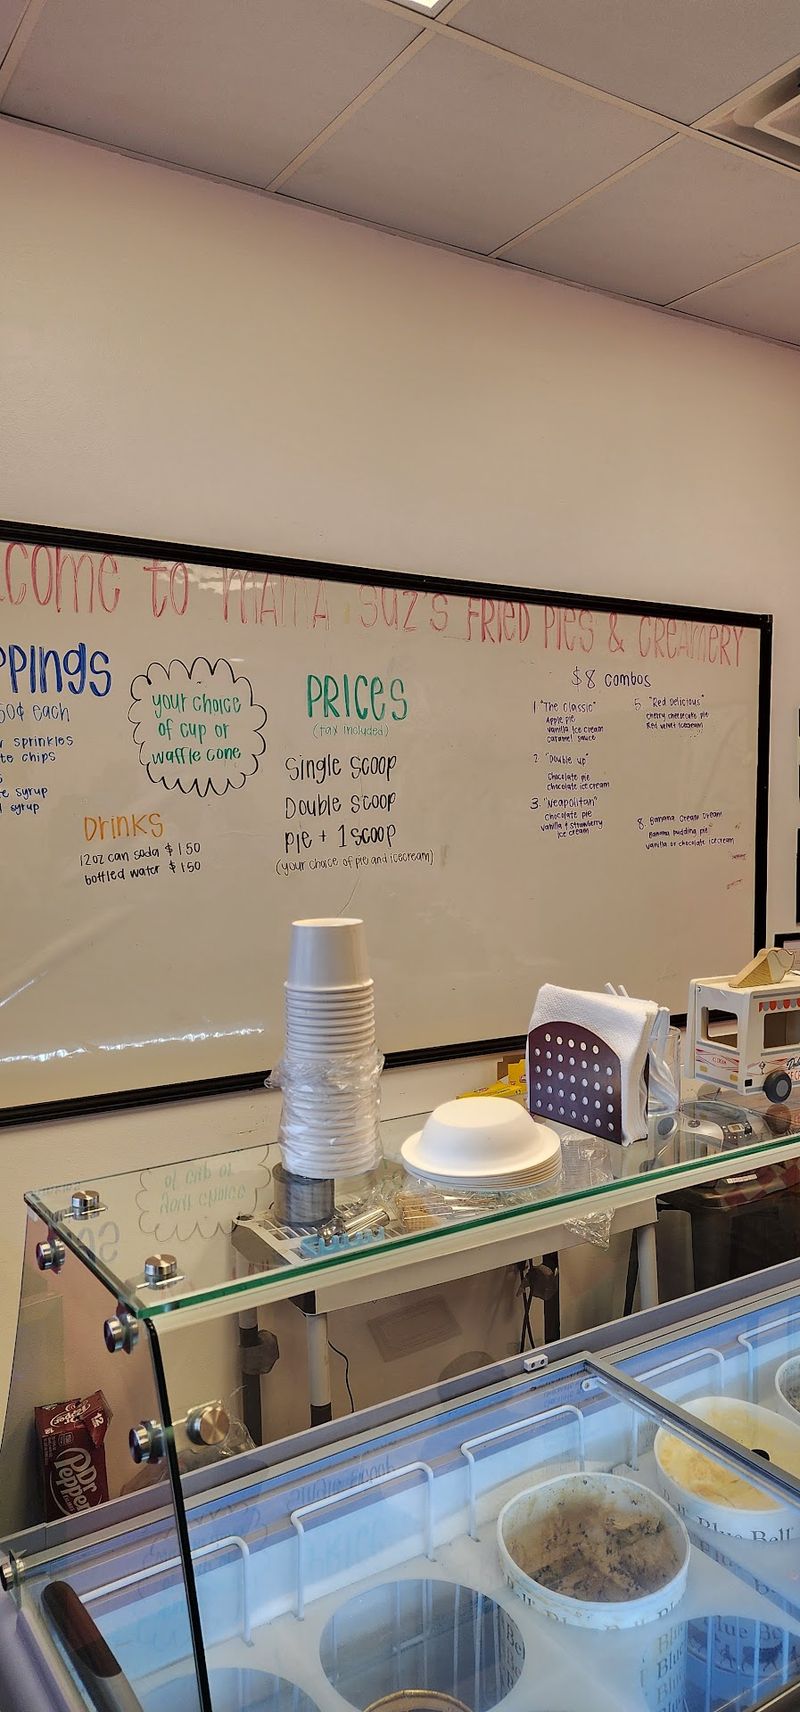 come to MAMA SUZ'S FRIED PIES & CREAMERY
ppings
50¢ each
sprinkles
te chips
syrup
syrup
your choice
of cup or
waffle cone
Drinks
12oz can soda $1.50
bottled water $1.50
PRICES
(tax included)
Single scoop
Double scoop
pie + 1 scoop
(your choice of pie and icecream)
$8 combos
1 "The Classic"
Apple pie
vanilla ice cream
caramel sauce
2. "Double up"
Chocolate pie
chocolate ice cream
3. "Neapolitan"
Chocolate pie
vanilla + strawberry
ice cream
5 "Red Delicious"
cherry cheesecake pie
Red velvet icecream
8. Banana Cream Dream
Banana pudding pie
vanilla or chocolate icecream
DR
Pepper
Blue Bell
Blue Be